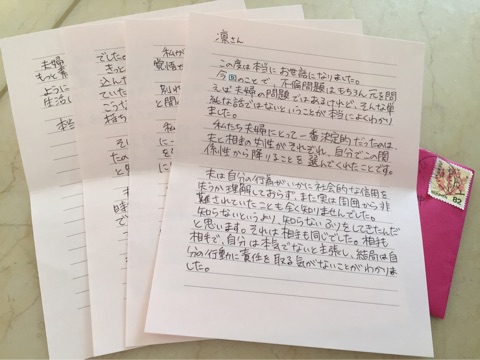 夫婦
もっと
ように
生活し
本当
でした。
きっと
込んた
ていた
こうな
持ち
そし
たの
私が
別れ
と聞
凛さん
この度は本当にお世話になりました。
今回のことで、不倫問題はもちろん元を問
えば夫婦の問題ではあるけれど、そんな単
純な話ではないということが本当によくわかり
ました。
私たち夫婦にとって一番決定的だったのは、
夫と相手の女性がそれぞれ、自分でこの関
係性から降りることを選んでくれたことです。
夫は自分の行為がいかに社会的な信用を
失うか理解しておらず、また実は周囲から非
難されていたことも全く知りませんでした。
知らないというより、知らないふりをしてきたんだ
と思います。それは相手も同じでした。相手も
相手で、自分は本気でないと主張し、結局は自
分の行動に責任を取る気がないことがわかりま
した。
82